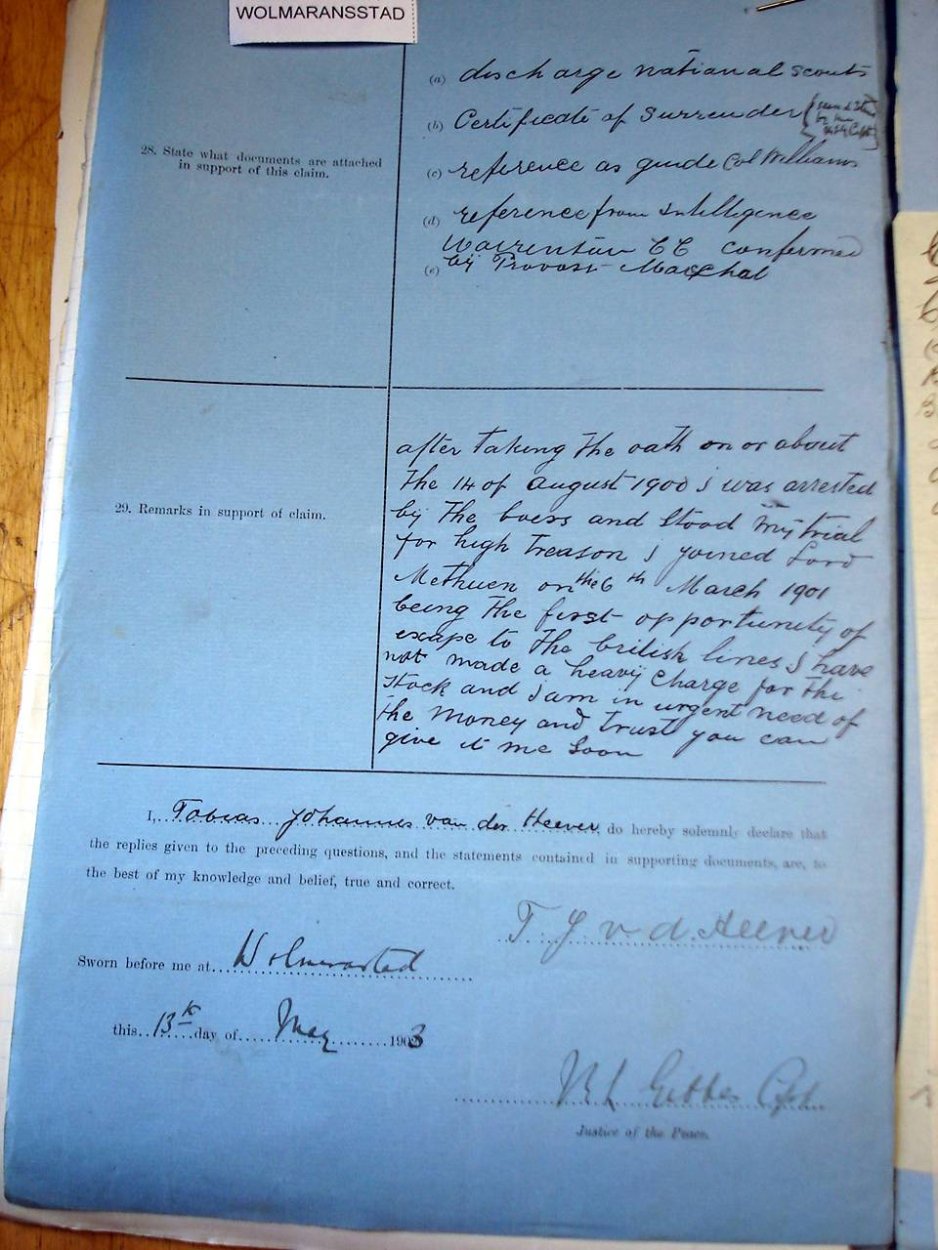 WOLMARANSSTAD
28. State what documents are attached
in support of this claim.
(a) discharge national scouts
(b) Certificate of Surrender
(c) reference as guide Col Williams
(d) reference from intelligence
Warrenton CC confermed
(e) by Provost Marchal
29. Remarks in support of claim.
after taking the oath on or about
the 14 of august 1900 i was arrested
by the boers and stood my trial
for high treason i joined Lord
Methuen on the 6th March 1901
being the first opportunity of
excape to the british lines I have
not made a heavy charge for the
stock and I am in urgent need of
the money and trust you can
give it me soon
I, Tobias Johannes van der Heever, do hereby solemnly declare that
the replies given to the preceding questions, and the statements contained in supporting documents, are, to
the best of my knowledge and belief, true and correct.
T. J v. d. Heever
Sworn before me at Wolmarastad
this 13th day of May 1903
Gibbes Capt
Justice of the Peace.